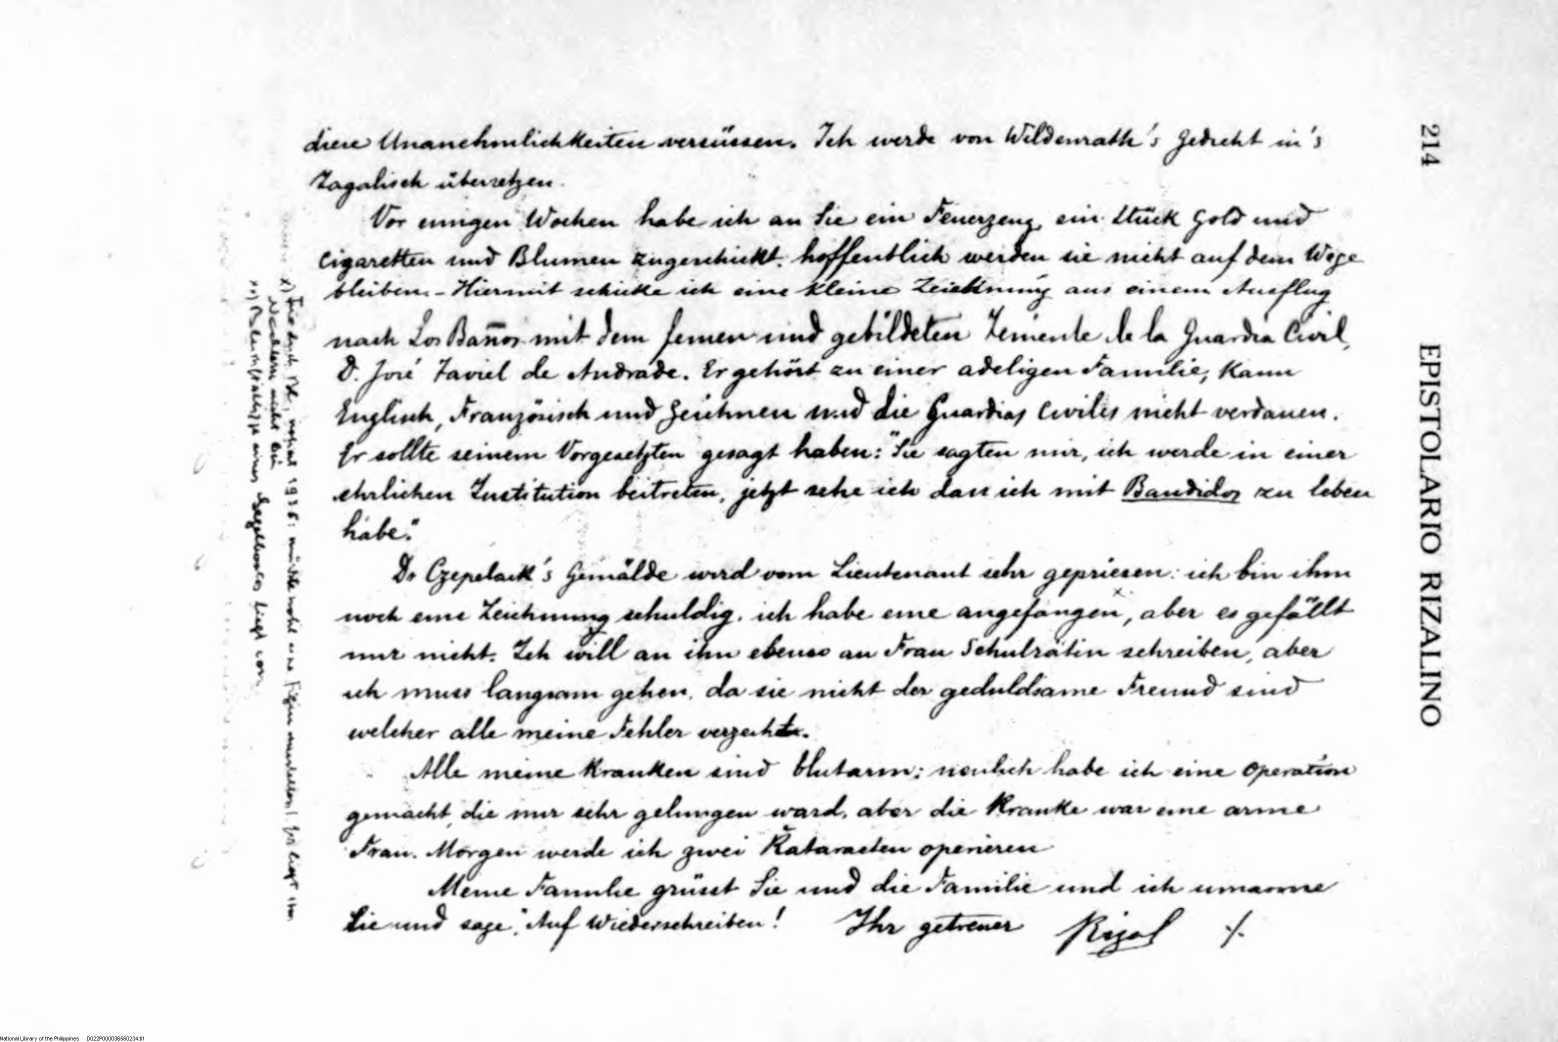 214
EPISTOLARIO RIZALINO
diese Unanehmlichkeiten versüssen. Ich werde von Wildenrath's Gedicht in's
Tagalisch übersetzen.
Vor einigen Wochen habe ich an Sie ein Feuerzeug, ein Stück Gold und
Cigaretten und Blumen zugeschickt. hoffentlich werden sie nicht auf dem Wege
bleiben. - Hiermit schicke ich eine kleine Zeichnung aus einem Ausflug
nach Los Baños mit dem feinen und gebildeten Teniente de la Guardia Civil,
D. José Taviel de Andrade. Er gehört zu einer adeligen Familie, kann
Englisch, Französisch und Zeichnen und die Guardias Civiles nicht verdauen.
Er sollte seinem Vorgesetzten gesagt haben: "Sie sagten mir, ich werde in einer
ehrlichen Institution beitreten, jetzt sehe ich dass ich mit Bandidos zu leben
habe."
Dr Czepelack's Gemälde wird vom Lieutenant sehr gepriesen: ich bin ihm
noch eine Zeichnung schuldig. ich habe eine angefangen, aber es gefällt
mir nicht. Ich will an ihn ebenso an Frau Schulrätin schreiben, aber
ich muss langsam gehen, da sie nicht der geduldsame Freund sind
welcher alle meine Fehler verzeiht.
Alle meine Kranken sind blutarm; neulich habe ich eine Operation
gemacht, die mir sehr gelungen ward, aber die Kranke war eine arme
Frau. Morgen werde ich zwei Kataracten operieren
Meine Familie grüsst Sie und die Familie und ich umarme
Sie und sage: "Auf Wiederschreiben! Ihr getreuer Rizal ./.
x) 1936:
xx) eines Segelbootes liegt vor.